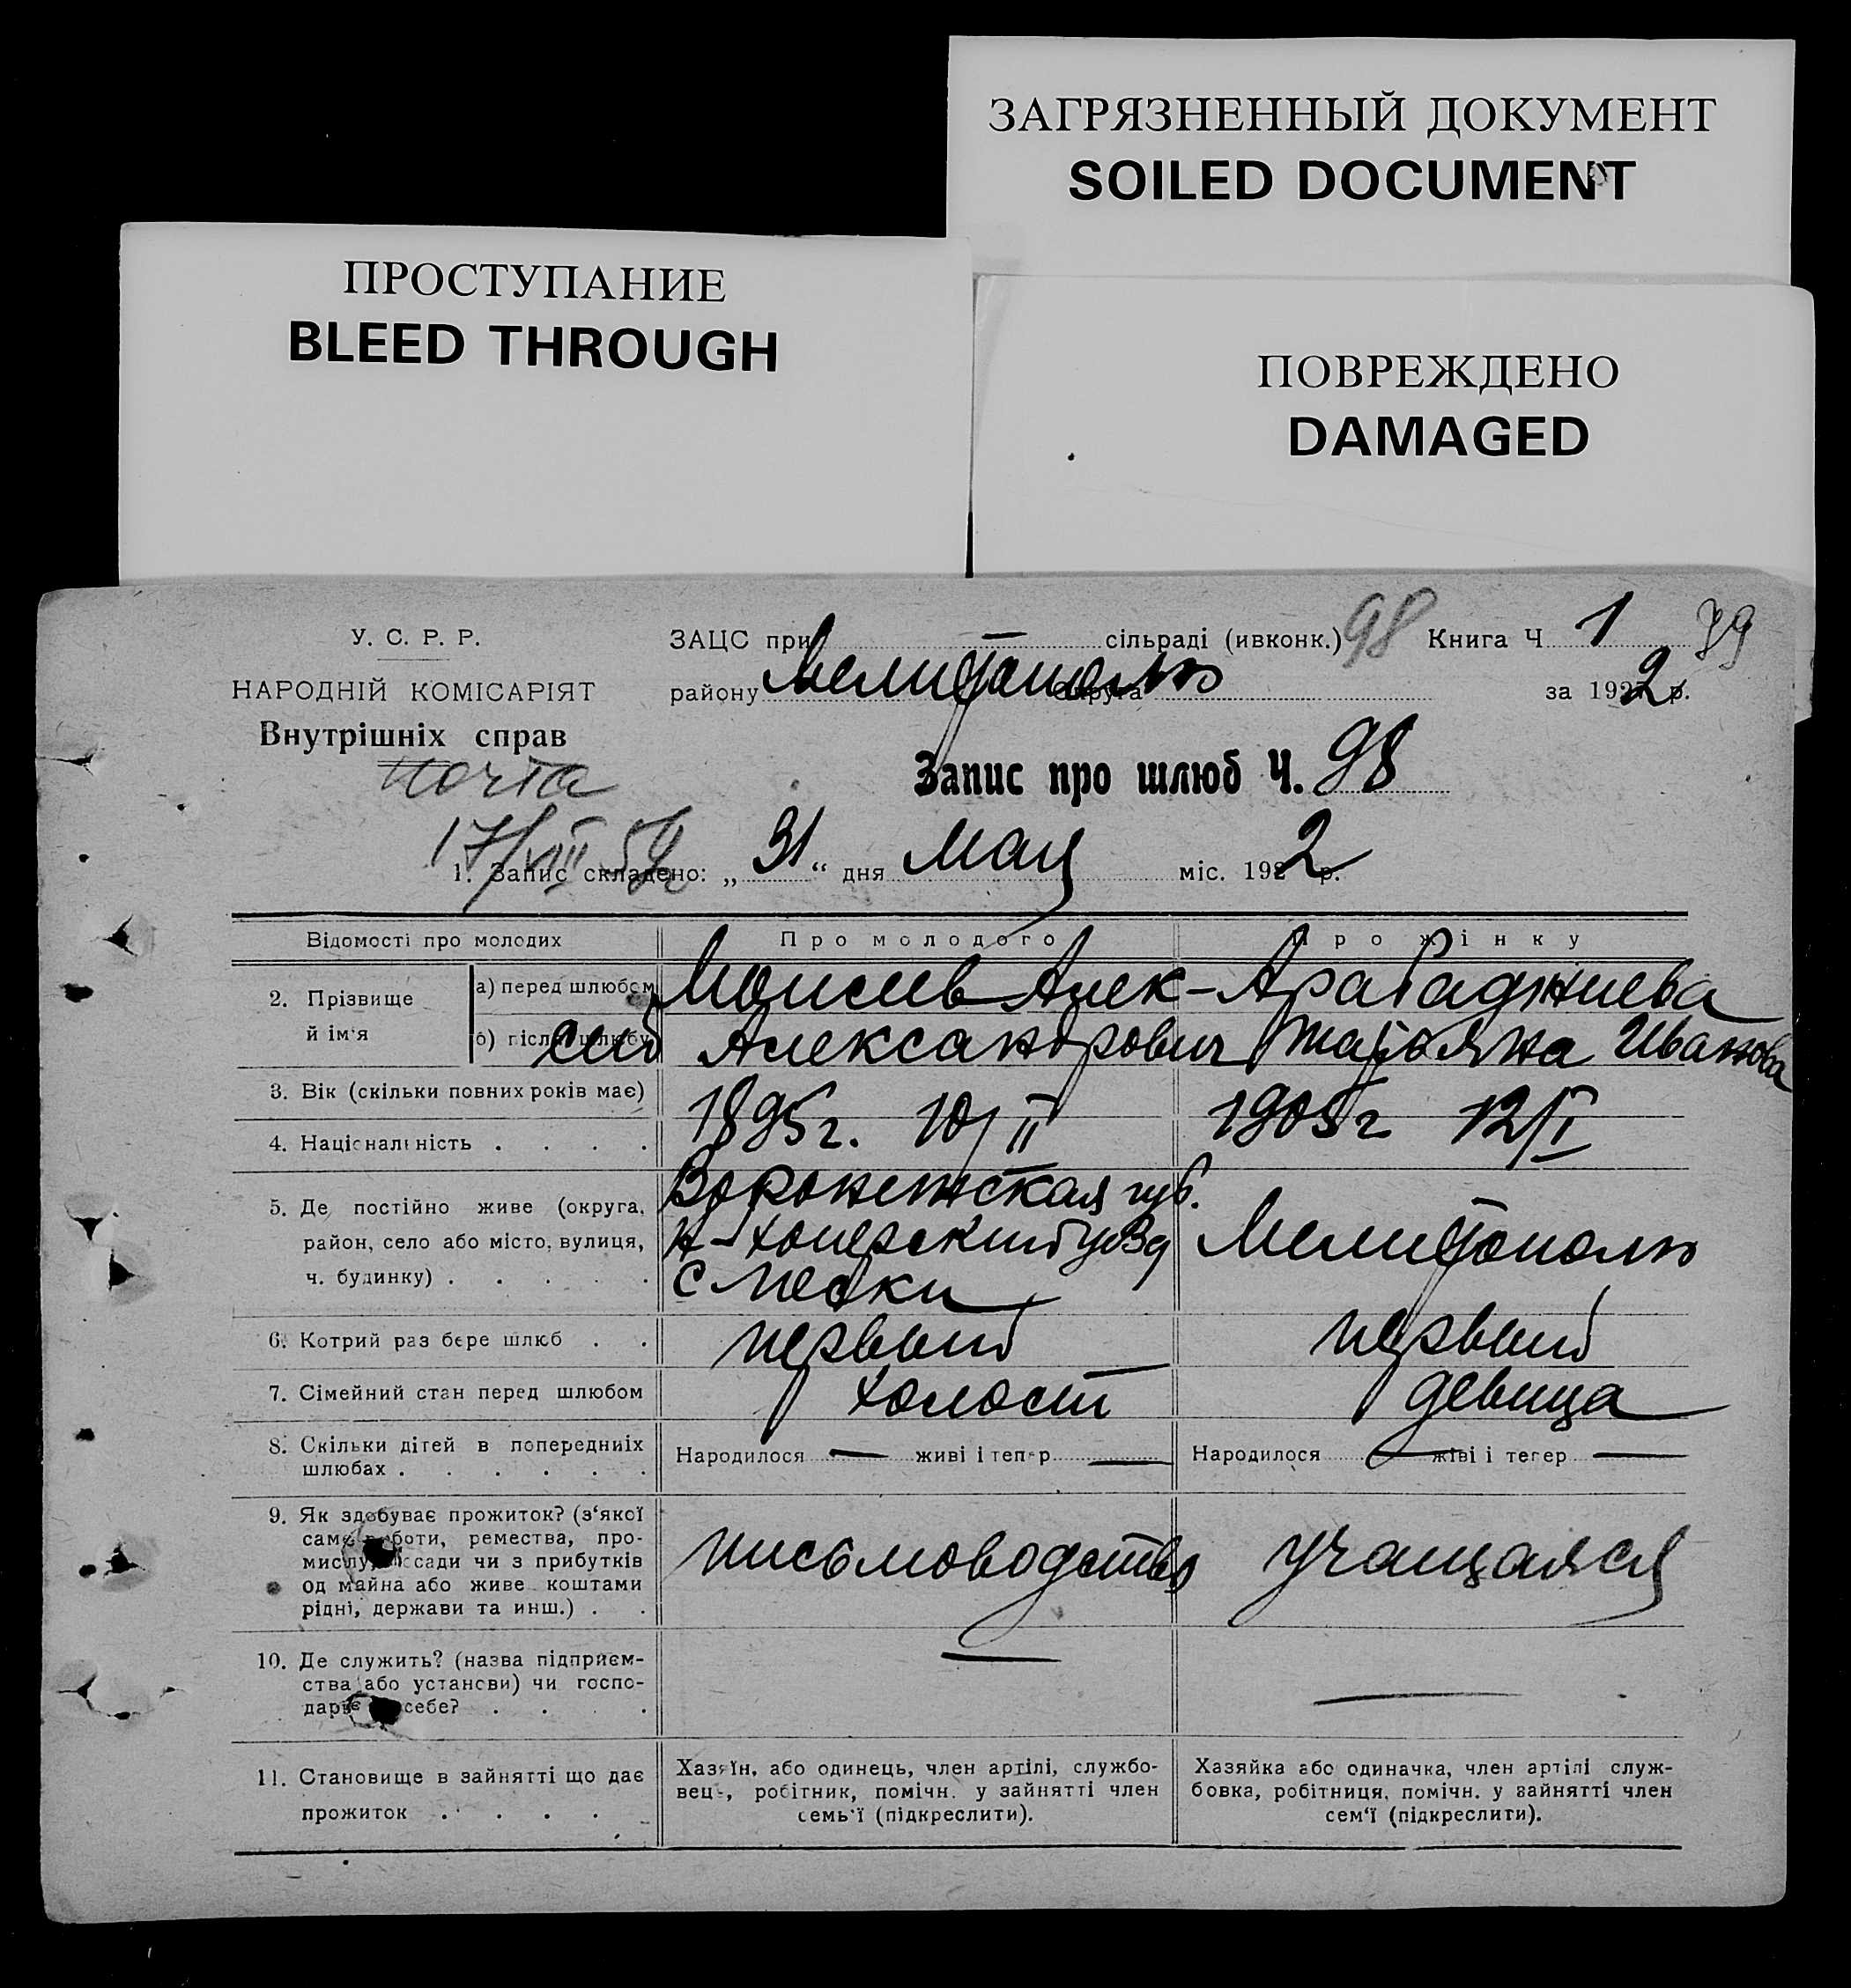 ЗАГРЯЗНЕННЫЙ ДОКУМЕНТ
SOILED DOCUMENT
ПРОСТУПАНИЕ
BLEED THROUGH
ПОВРЕЖДЕНО
DAMAGED
У. С. Р. Р.
НАРОДНІЙ КОМІСАРІЯТ
Внутрішніх справ
почта
17/VIII 54
ЗАЦС при — сільраді (ивконк.) 98 Книга Ч 1 79
району Мелитополь Округа за 1922 р.
Запис про шлюб Ч. 98
1. Запис складено: „31“ дня мая міс. 1922 р.
Відомості про молодих Про молодого Про жінку
2. Прізвище й ім'я
а) перед шлюбом Моисеев Алек- Арабаджиева
б) після шлюбу сей Александрович Татьяна Иванова
3. Вік (скільки повних років має) 1895г. 10/II 1905г 12/I
4. Національність . . . .
5. Де постійно живе (округа, район, село або місто, вулиця, ч. будинку) . . . . .
Воронежская губ.
Н-Хоперский уезд
с Пески
Мелитополь
6. Котрий раз бере шлюб . . первый первый
7. Сімейний стан перед шлюбом холост девица
8. Скільки дітей в попередниіх шлюбах . . . . . .
Народилося — живі і тепер — Народилося — живі і тепер —
9. Як здобуває прожиток? (з'якої
саме роботи, ремества, про-
мислу, посади чи з прибутків
од майна або живе коштами
рідні, держави та инш.) . .
письмоводство учащаяся
10. Де служить? (назва підприєм-
ства або установи) чи госпо-
дарює себе? . . . .
— —
11. Становище в зайнятті що дає
прожиток . . . . .
Хазяїн, або одинець, член артілі, службо-
вець, робітник, помічн. у зайнятті член
семь'ї (підкреслити).
Хазяйка або одиначка, член артілі служ-
бовка, робітниця, помічн. у зайнятті член
сем'ї (підкреслити).